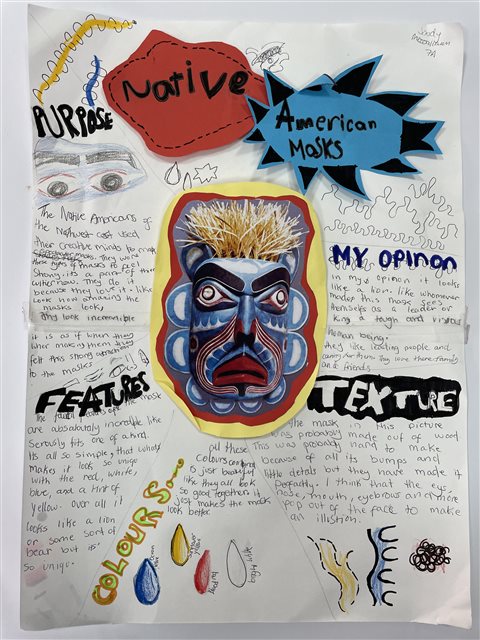 7A
Native
American
Masks
PURPOSE
The Native Americans of
the Northwest cost used
their creative minds to make
these types of masks to felt
Shown its a part of thier
They do it
because they love it like
look how amazing the
masks look,
They look incredible
it is as if when they
wher making them they
felt this strong
to the masks
MY OPINON
in my opinion it looks
like a lion. like whomever
made this mask sees
themselves as a leader or
king a tough and
human being.
they like leading people and
and friends
FEATURES
The features off the mask
are absaloutely incredible like
Seriously its one of a kind.
Its all so simple, that whats
makes it look so uniqe
with the red, white,
blue, and a hint of
Yellow. over all it
looks like a lion
or some sort of
bear but its
so uniqe.
COLOURS
all these
Colours combined
is just beautiful
like they all look
so good together it
just makes the mask
look better
blue
yellow
red
bright white
TEXTURE
the mask in this picture
was probobly made out of wood
This was probobly hard to make
because of all its bumps and
little detals but they have made it
I think that the eye,
nose, mouth, eyebrows and more
pop out of the face to make
an illustion.